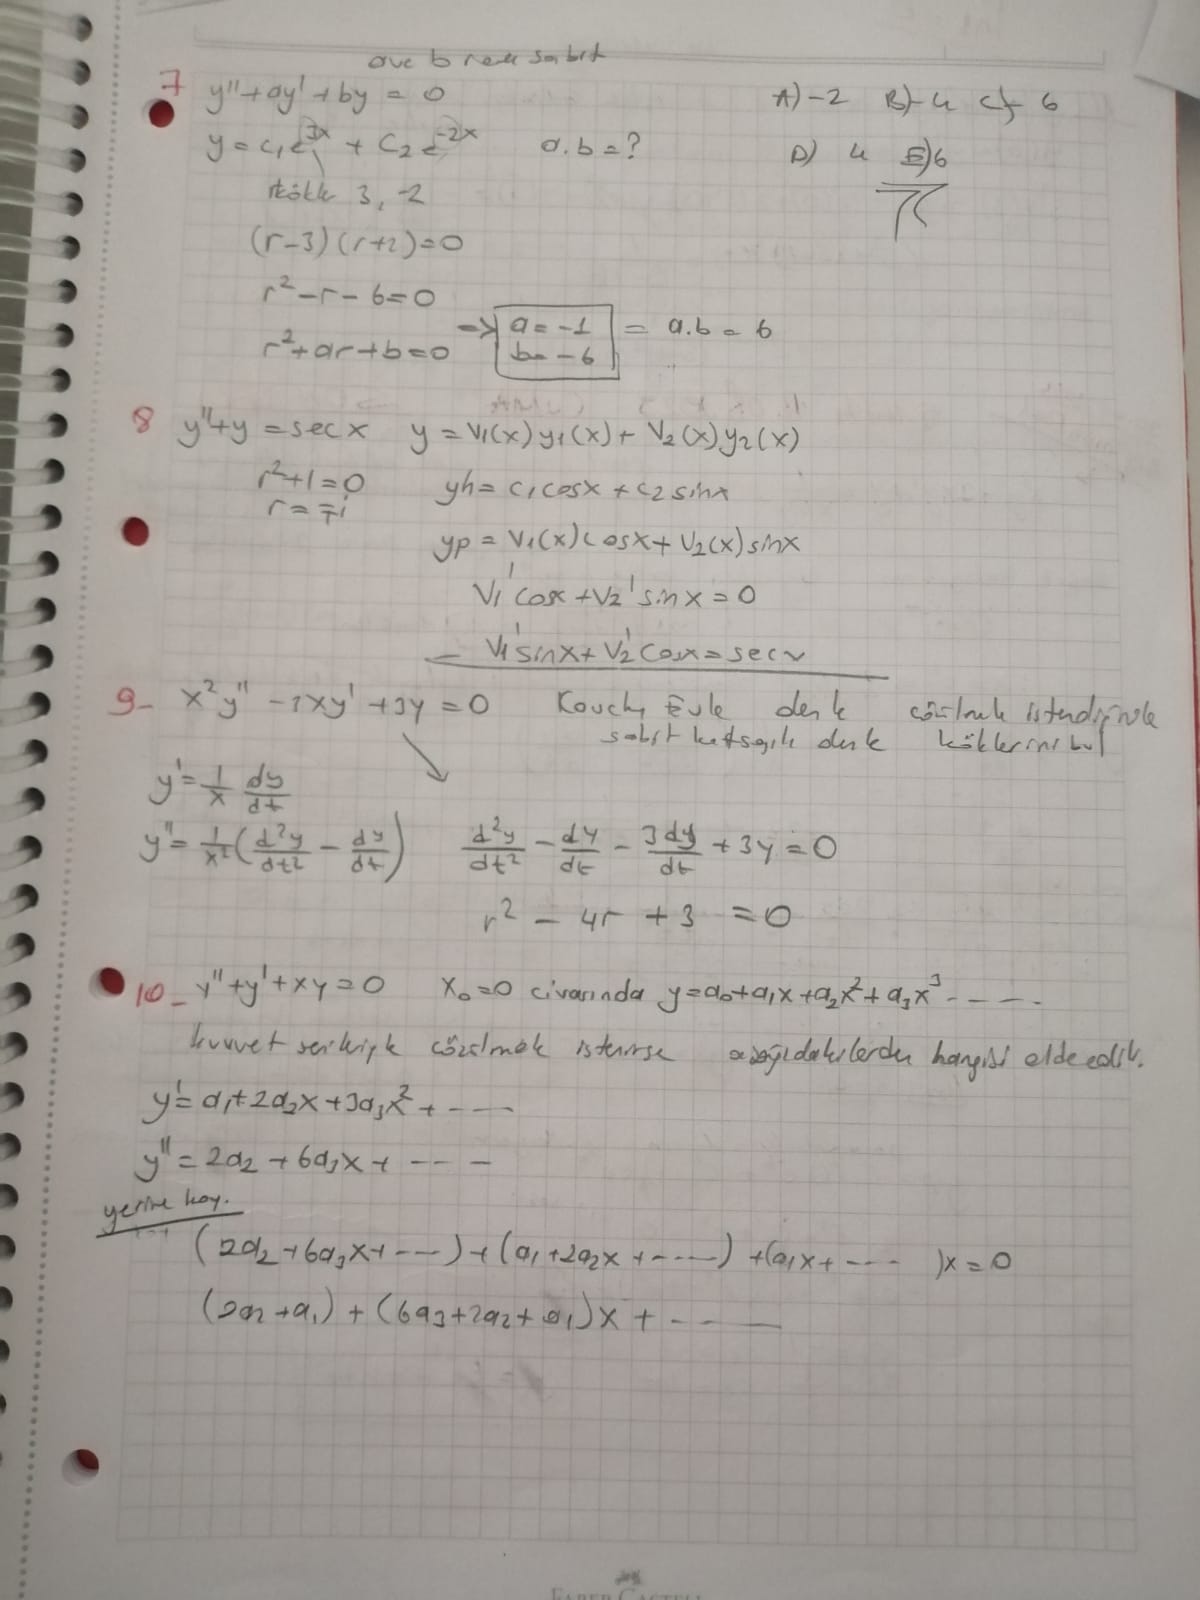 a ve b reel sabit
7 y'' + ay' + by = 0 A) -2 B) -4 C) -6
y = c₁e^3x + c₂e^-2x a.b = ? D) 4 E) 6
3, -2
(r-3)(r+2)=0
r² - r - 6 = 0
r² + ar + b = 0 => a = -1 b = -6 = a.b = 6
8 y'' + y = sec x y = V₁(x)y₁(x) + V₂(x)y₂(x)
r² + 1 = 0 yh = c₁cosx + c₂ sinx
r = ∓i
yp = V₁(x)cosx + V₂(x)sinx
V₁' cosx + V₂' sinx = 0
- V₁' sinx + V₂' cosx = secx
9- x²y'' - 3xy' + 3y = 0 Kouchy Eule denk çözülmek istendiğinde
sabit katsayılı denk köklerini bul
y' = 1/x dy/dt
y'' = 1/x² (d²y/dt² - dy/dt) d²y/dt² - dy/dt - 3dy/dt + 3y = 0
r² - 4r + 3 = 0
10- y'' + y' + xy = 0 x₀ = 0 civarında y = a₀ + a₁x + a₂x² + a₃x³ - - - - -
kuvvet serisiyle çözülmek istenirse aşağıdakilerden hangisi elde edilir.
y' = a₁ + 2a₂x + 3a₃x² + - - - -
y'' = 2a₂ + 6a₃x + - - - -
yerine koy.
(2a₂ + 6a₃x + - - -) + (a₁ + 2a₂x + - - - -) + (a₁x + - - - - )x = 0
(2a₂ + a₁) + (6a₃ + 2a₂ + a₁)x + - - - -
FABER CASTELL